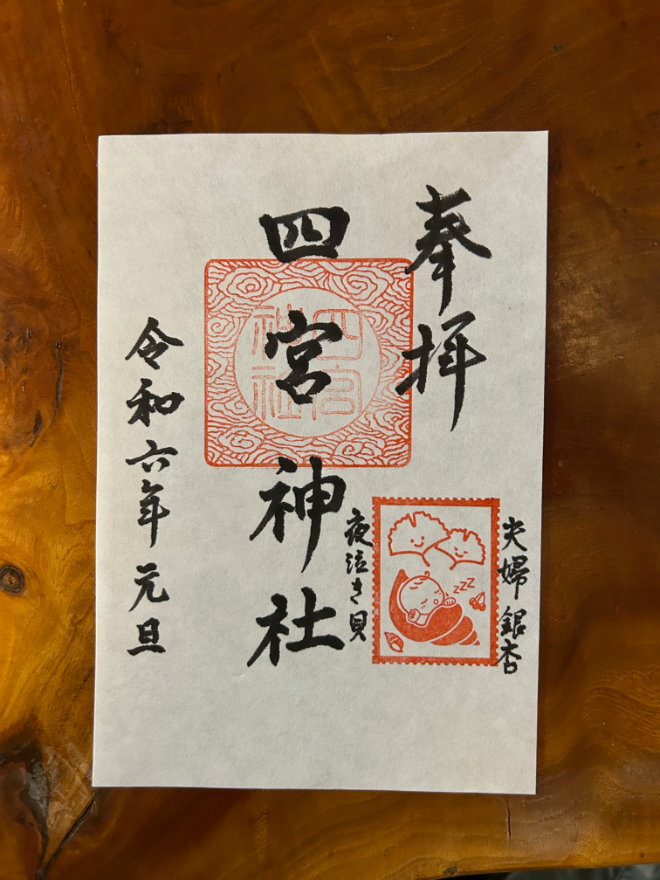 奉拝
夫婦銀杏
zzz
夜泣き貝
四宮神社
四宮
神社
令和六年元旦